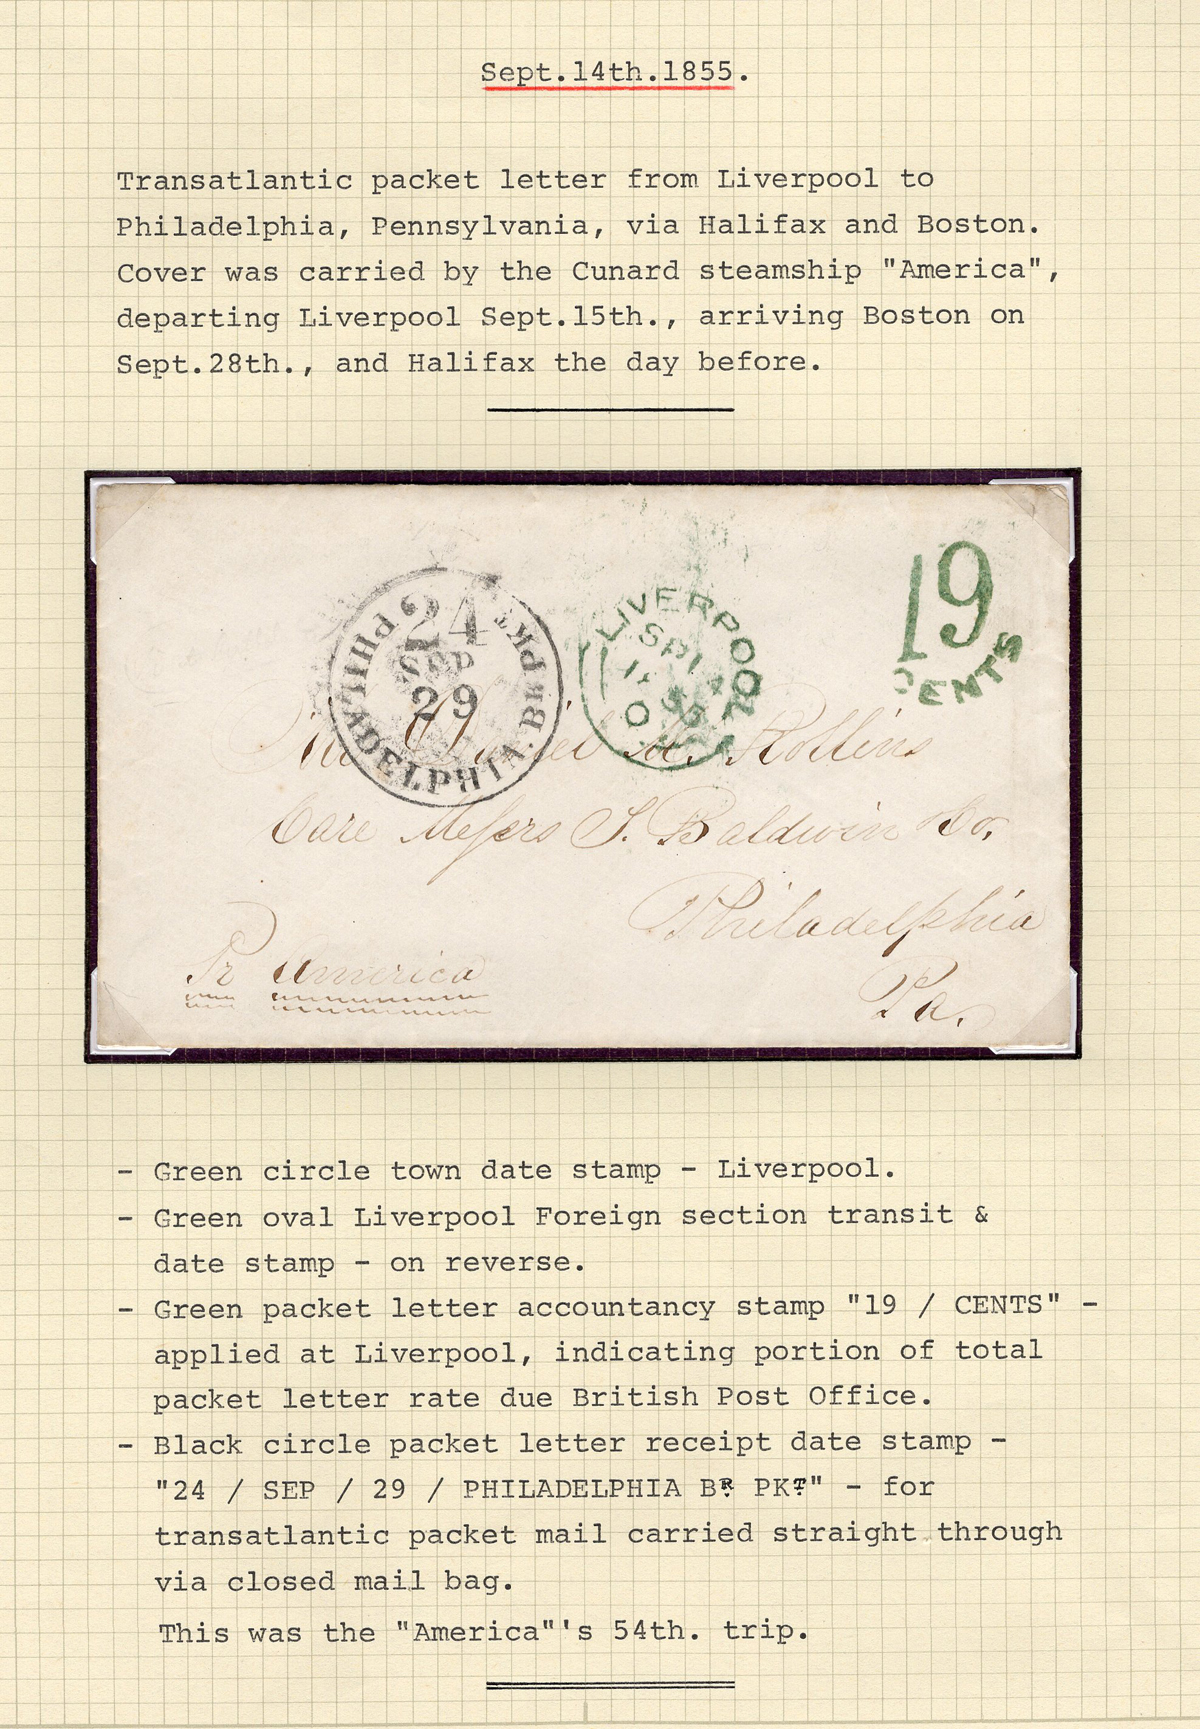 Sept.14th.1855.
Transatlantic packet letter from Liverpool to
Philadelphia, Pennsylvania, via Halifax and Boston.
Cover was carried by the Cunard steamship "America",
departing Liverpool Sept.15th., arriving Boston on
Sept.28th., and Halifax the day before.
19
CENTS
24
SEP
29
PHILADELPHIA BR PKT
LIVERPOOL
SP14
Rollins
Care Messrs S. Baldwin & Co,
Philadelphia
Pa.
Pr America
- Green circle town date stamp - Liverpool.
- Green oval Liverpool Foreign section transit &
date stamp - on reverse.
- Green packet letter accountancy stamp "19 / CENTS" -
applied at Liverpool, indicating portion of total
packet letter rate due British Post Office.
- Black circle packet letter receipt date stamp -
"24 / SEP / 29 / PHILADELPHIA BR. PKT" - for
transatlantic packet mail carried straight through
via closed mail bag.
This was the "America"'s 54th. trip.